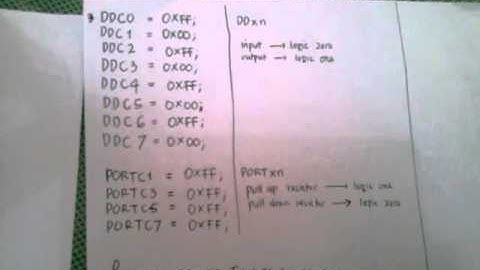 DDC0 = 0XFF;
DDC1 = 0X00;
DDC2 = 0XFF;
DDC3 = 0X00;
DDC4 = 0XFF;
DDC5 = 0X00;
DDC6 = 0XFF;
DDC7 = 0X00;
DDxn
input → logic zero
output → logic one
PORTC1 = 0XFF;
PORTC3 = 0XFF;
PORTC5 = 0XFF;
PORTC7 = 0XFF;
PORTxn
pull up resistor → logic one
pull down resistor → logic zero